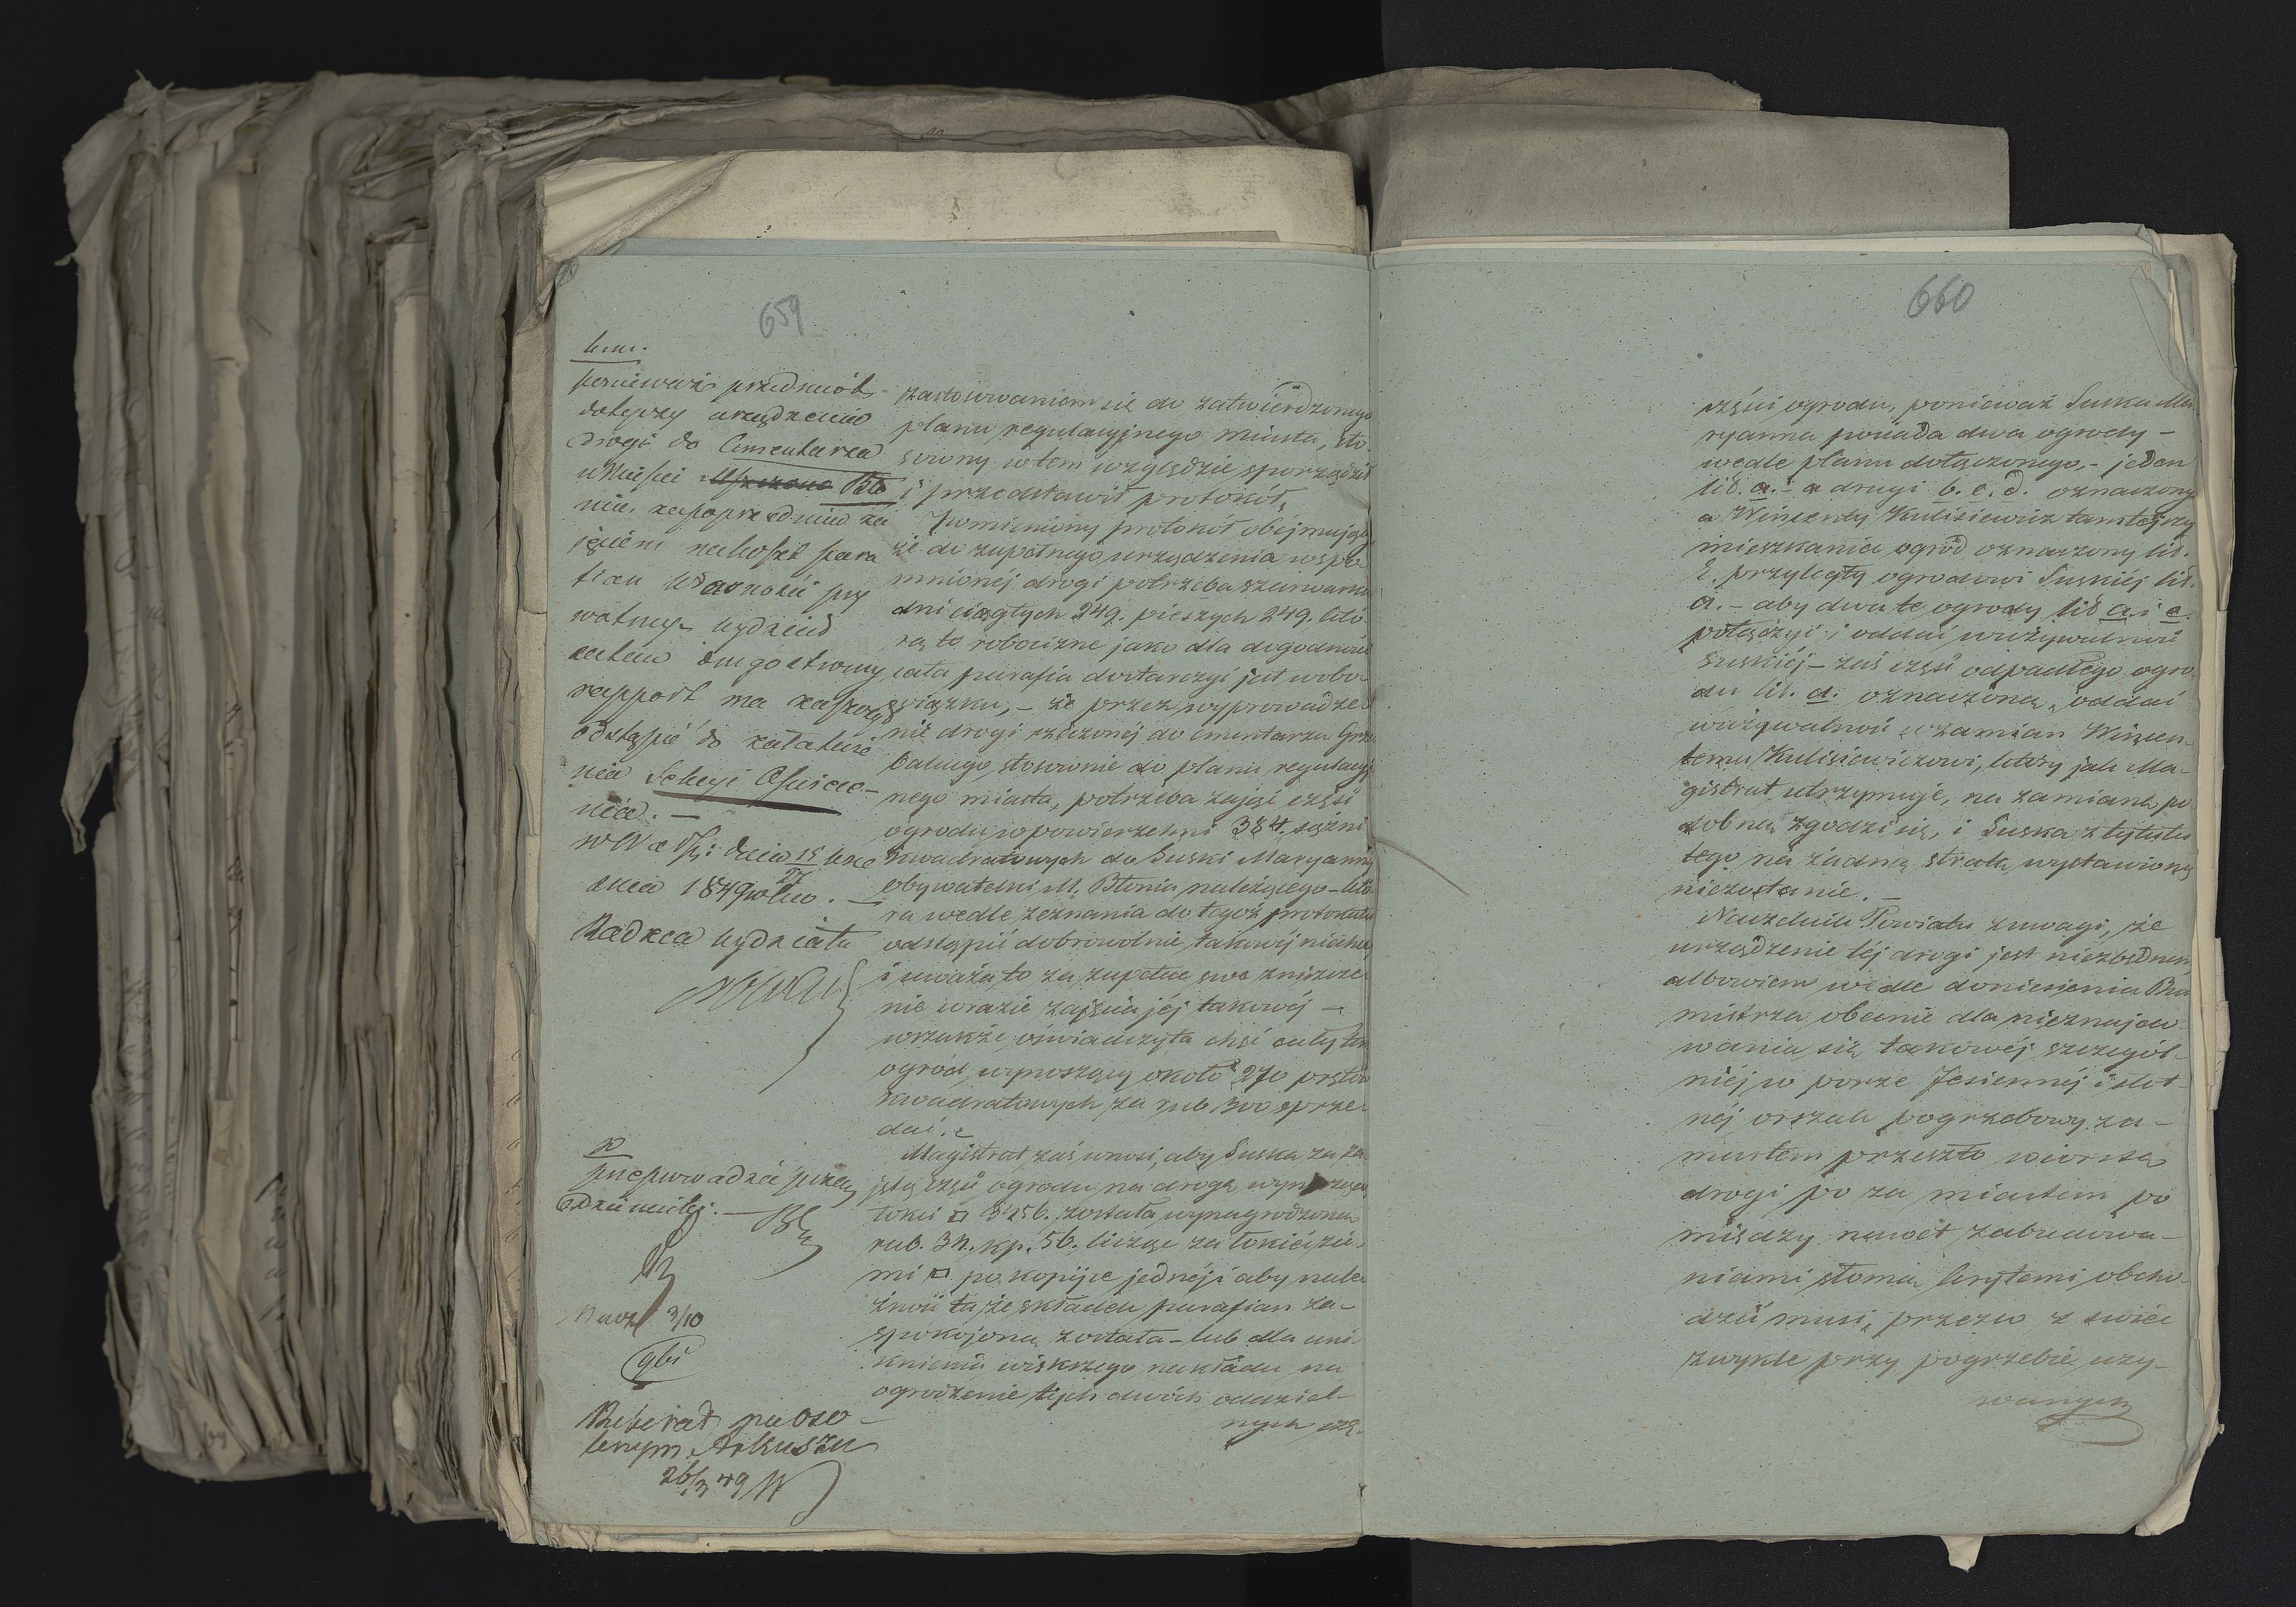 659
ponieważ przedmiot
dotyczy urządzenia
drogi do Cmentarza
w Mieście Bło
niu, za poprzedniem za
jęciem na koszt para
fian własności pry
watnej, Wydział
rapport ma zaszczyt
odstąpić do załatwie
nia Sekcyi Oświece-
nia. —
dnia 15/27
1849 roku. —
Radzca Wydziału
Nacz. 3/10
Referat na oso-
bnym Arkuszu
26/3 49
zastosowaniem się do zatwierdzonego
planu regulacyjnego miasta, sto
sowny w tem względzie sporządził
i przedstawił protokół,
Pomieniony protokół obejmuje,
że do zupełnego urządzenia wspo
mnionej drogi potrzeba szarwarku
dni ciągłych 249. pieszych 249. któ
rą to robociznę jako dla dogodności
cała parafia dostarczyć jest w obo
wiązku, — że przez wyprowadze
nie drogi rzeczonej do cmentarza Grze
balnego, stosownie do planu regulacyj
nego miasta, potrzeba zająć część
ogrodu, w powierzchni 384. sążni
kwadratowych do Suski Maryanny
obywatelki M. Błonia należącego — któ
ra wedle zeznania do tegoż protokułu
odstąpić dobrowolnie takowej niechce,
i uważa to za zupełne swe zniszcze
nie w razie zajęcia jej takowej —
wszakże oświadczyła chęć cały ten
ogród, wynoszący około 270 prętów
kwadratowych za rub 300 sprze
dać. —
Magistrat zaś wnosi, aby Suska za za
jętą część ogrodu na drogę wynoszącą
łokci □ 3456. została wynagrodzona
rub. 34. kp. 56. licząc za łokieć zie
mi □ po kopijce jednej i aby nale
żność ta ze składek parafian za-
spokojoną została — lub dla uni
knienia większego nakładu na
ogrodzenie tych dwóch oddziel-
nych czę.
660
części ogrodu, ponieważ Suska Ma
ryanna posiada dwa ogrody —
wedle planu dołączonego, — jeden
lit. a. — a drugi b. c. d. oznaczony
a Wincenty Kulisiewicz tamtejszy
mieszkaniec ogród oznaczony lit.
e. przyległy ogrodowi Suskiej lit.
a. — aby dwa te ogrody lit a. i e.
połączyć i oddać w używalność
Suskiej — zaś część odpadłego ogro
du lit. d. oznaczoną, oddać
w używalność w zamian Wincen-
temu Kulisiewiczowi, który jak Ma-
gistrat utrzymuje, na zamianę po
dobną zgodzi się, i Suska z tytułu
tego na żadną stratę wystawioną
niezostanie. —
Naczelnik Powiatu z uwagi, że
urządzenie tej drogi jest niezbędnem
albowiem wedle doniesienia Bur
mistrza obecnie dla nieznajdo-
wania się takowej szczegól-
niej w porze Jesiennej i słot-
nej orszak pogrzebowy za-
martem przeszło wiorstę
drogi po za miastem po
między nawet zabudowa-
niami słomą krytemi obcho-
dzić musi, przezco z świec
zwykle przy pogrzebie uży-
wanych